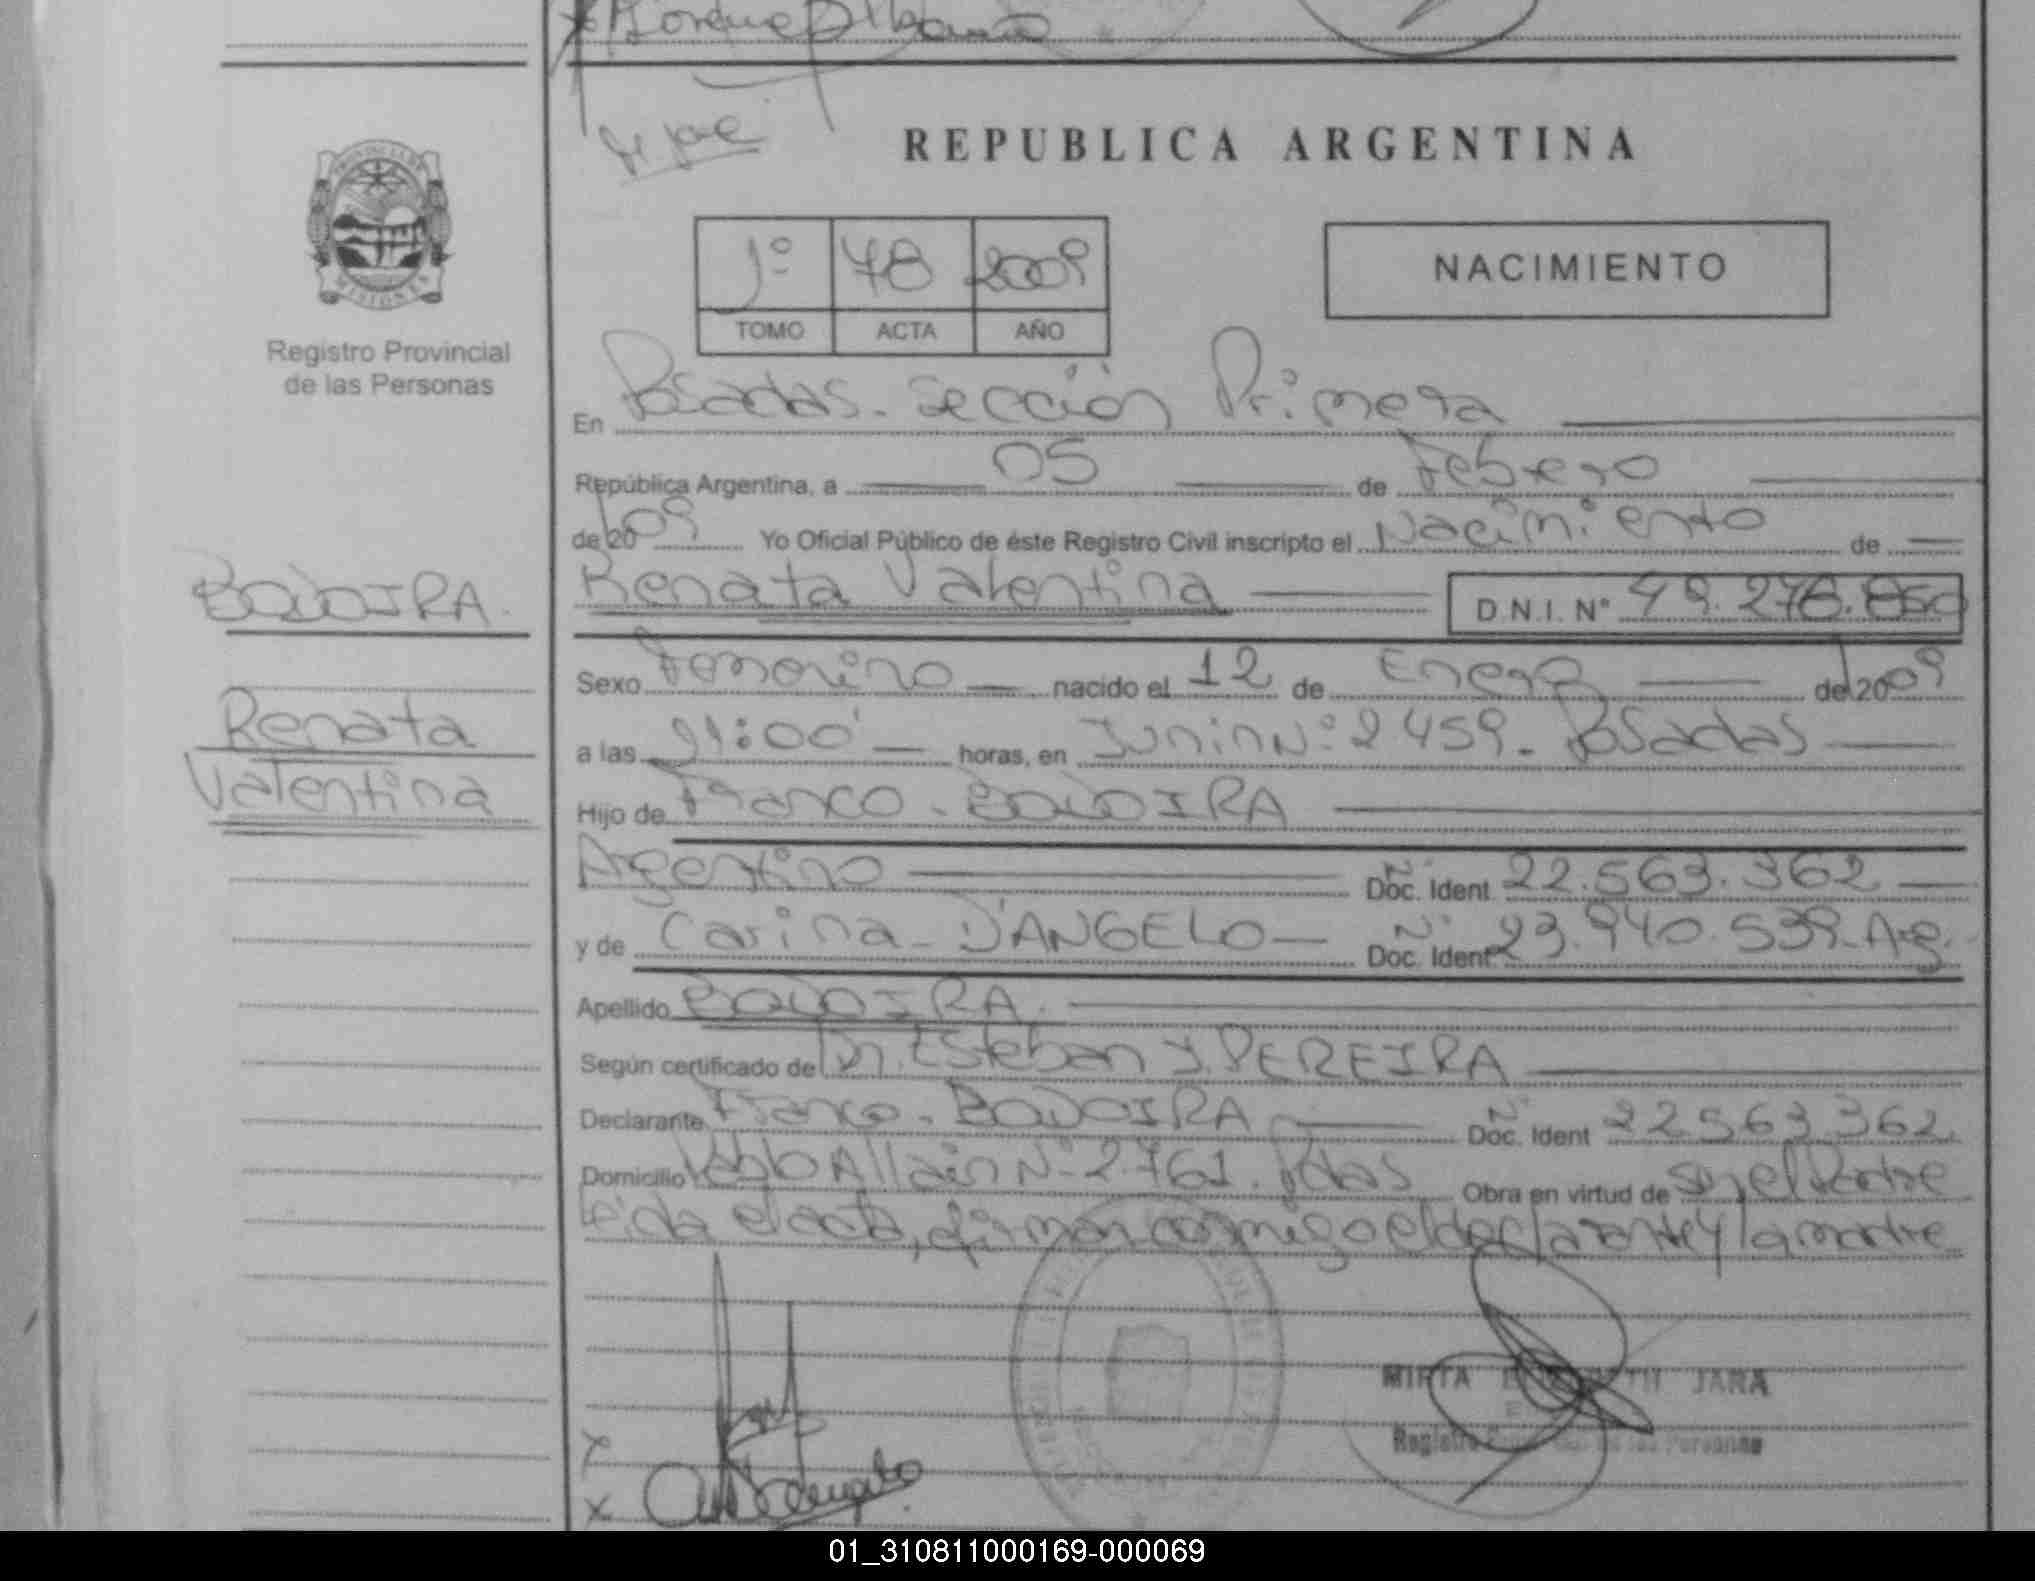 REPUBLICA ARGENTINA
PROVINCIA DE
MISIONES
Registro Provincial
de las Personas
1º 78 2009
TOMO ACTA AÑO
NACIMIENTO
En Posadas. Sección Primera
República Argentina, a 05 de Febrero
de 2009 Yo Oficial Público de éste Registro Civil inscripto el Nacimiento de
Renata Valentina D.N.I. Nº 49.278.
Renata
Valentina
Sexo Femenino nacido el 12 de Enero de 2009
a las 21:00 horas, en Junin Nº 2459. Posadas
Hijo de Franco
Argentino Nº Doc. Ident. 22.563.362
y de Carina D'ANGELO Nº Doc. Ident. 23.940.539. Arg.
Apellido
Según certificado de Dr. Esteban J. PEREIRA
Declarante Franco Nº Doc. Ident 22563362
Domicilio Nº 2761. Pdas Obra en virtud de ser el Padre
leída el acta, firman conmigo el declarante y la madre
MIRTA JARA
Registro de las Personas
x
x
01_310811000169-000069